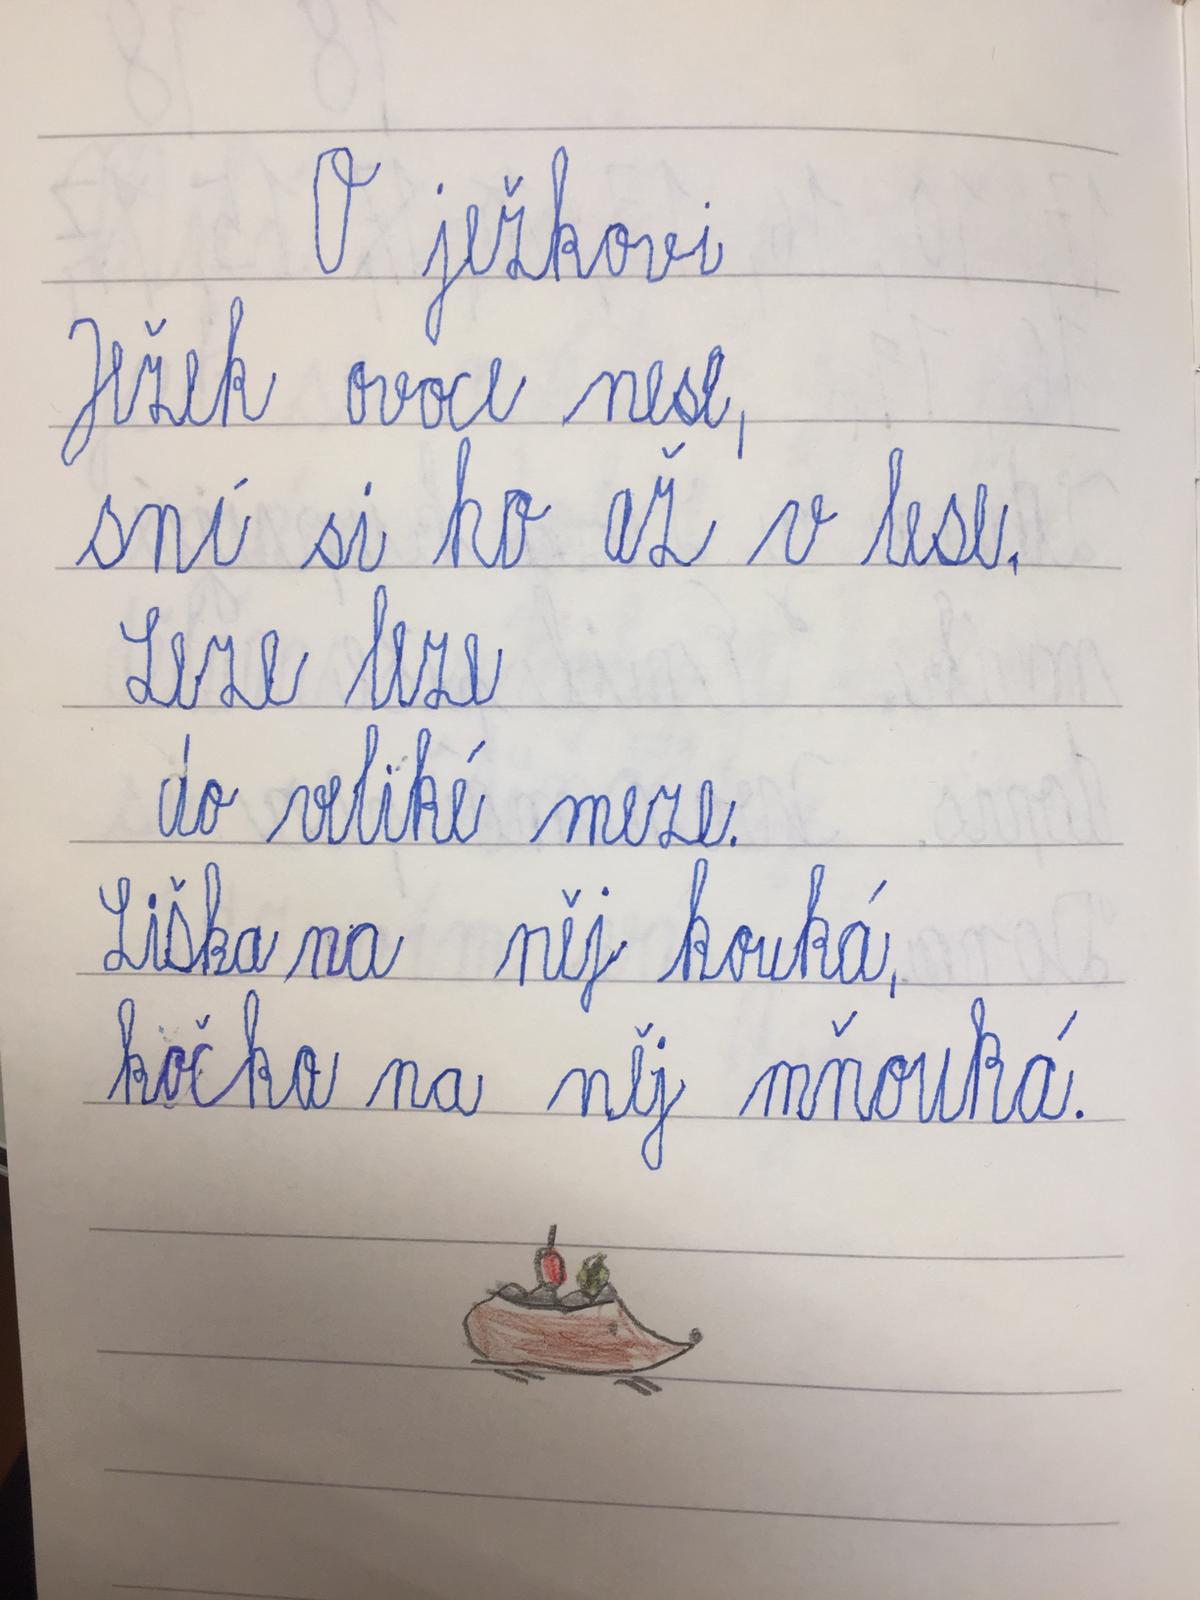 O ježkovi
Ježek ovoce nese,
sní si ho až v lese.
Leze leze
do veliké meze.
Liška na něj kouká,
kočka na něj mňouká.